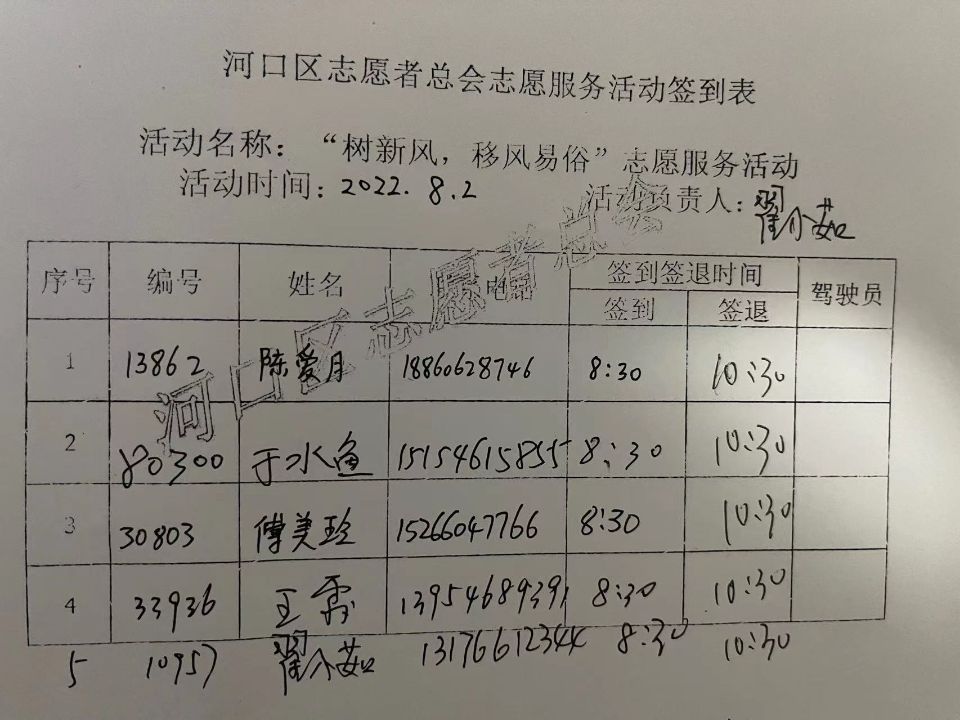 河口区志愿者总会志愿服务活动签到表
活动名称：“树新风，移风易俗”志愿服务活动
活动时间：2022.8.2 活动负责人：翟介茹
序号 编号 姓名 电话 签到签退时间 驾驶员
签到 签退
1 13862 陈爱月 18860628746 8:30 10:30
2 80300 于冰鱼 15154615855 8:30 10:30
3 30803 傅美玲 15266047766 8:30 10:30
4 33936 王霞 13954689391 8:30 10:30
5 10957 翟介茹 13176612344 8:30 10:30
河口区志愿者总会